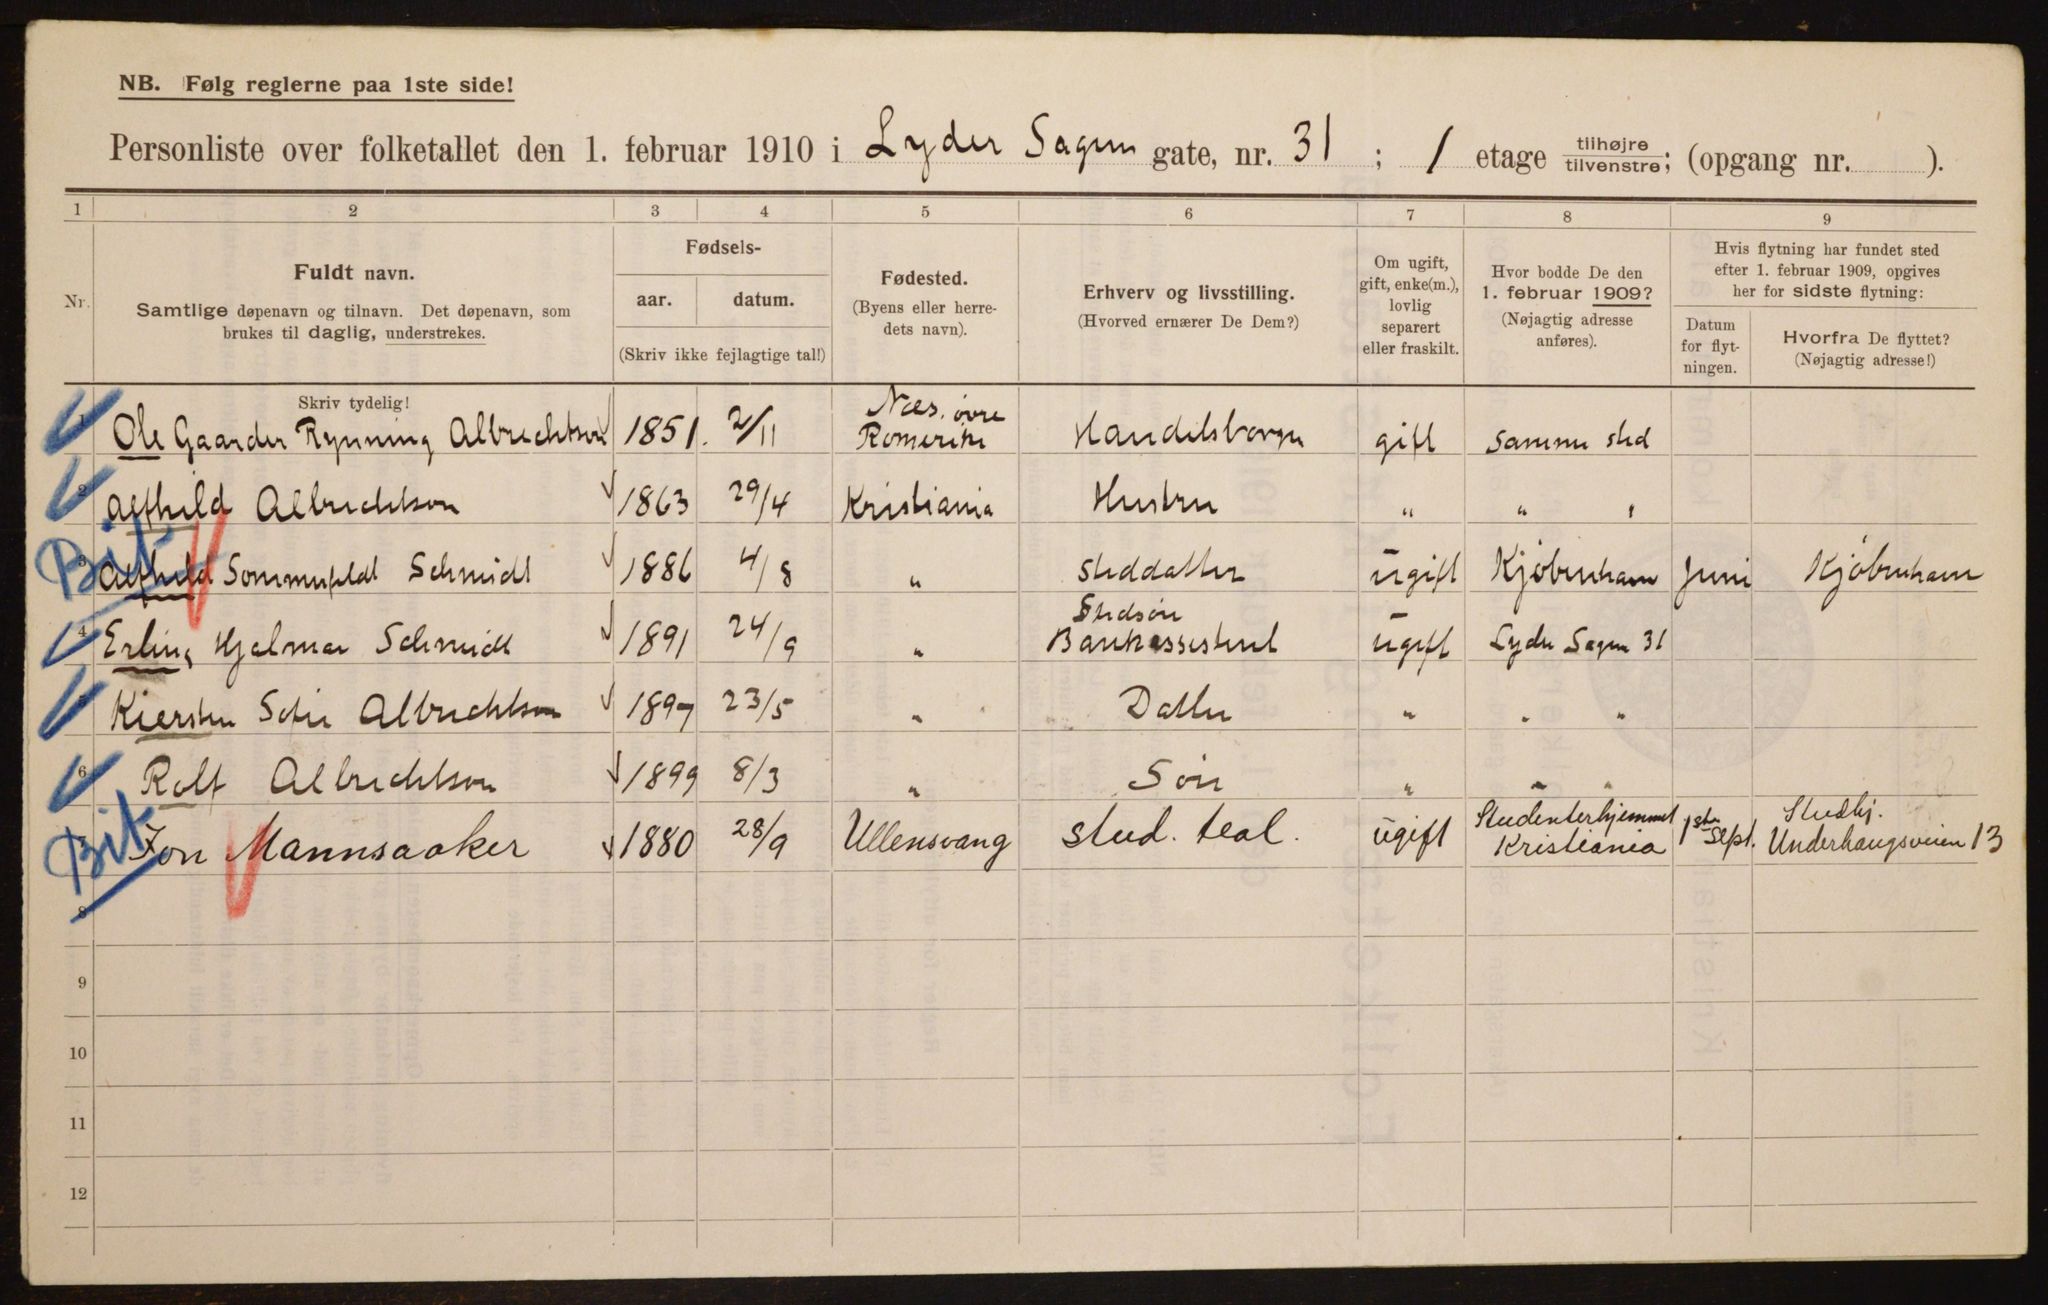 NB. Følg reglerne paa 1ste side!
Personliste over folketallet den 1. februar 1910 i Lyder Sagens gate, nr. 31 ; 1 etage tilhøjre/tilvenstre; (opgang nr. ).
1 2 3 4 5 6 7 8 9
Nr.
Fuldt navn.
Samtlige døpenavn og tilnavn. Det døpenavn, som
brukes til daglig, understrekes.
Fødsels-
aar. datum.
(Skriv ikke fejlagtige tal!)
Fødested.
(Byens eller herre-
dets navn).
Erhverv og livsstilling.
(Hvorved ernærer De Dem?)
Om ugift,
gift, enke(m.),
lovlig
separert
eller fraskilt.
Hvor bodde De den
1. februar 1909?
(Nøjagtig adresse
anføres).
Hvis flytning har fundet sted
efter 1. februar 1909, opgives
her for sidste flytning:
Datum
for flyt-
ningen.
Hvorfra De flyttet?
(Nøjagtig adresse!)
Skriv tydelig!
1 Ole Gaarder Rynning Albrechtson 1851. 2/11 Næs. øvre Romerike Handelsborger gift Samme sted
2 Alfhild Albrechtson 1863 29/4 Kristiania Hustru " " "
Bit.
3 Alfhild Sommerfeldt Schmidt 1886 4/8 " Steddatter ugift Kjöbenhavn Juni Kjöbenhavn
4 Erling Hjalmar Schmidt 1891 24/9 " Stedsön Bankassistent ugift Lyder Sagens 31
5 Kiersten Sofie Albrechtson 1897 23/5 " Datter " " "
6 Rolf Albrechtson 1899 8/3 " Sön " " "
Bit.
Jon Mannsaaker 1880 28/9 Ullensvang stud. teol. ugift Studenterhjemmet Kristiania 1ste Sept. Studhj. Underhaugsveien 13
8
9
10
11
12